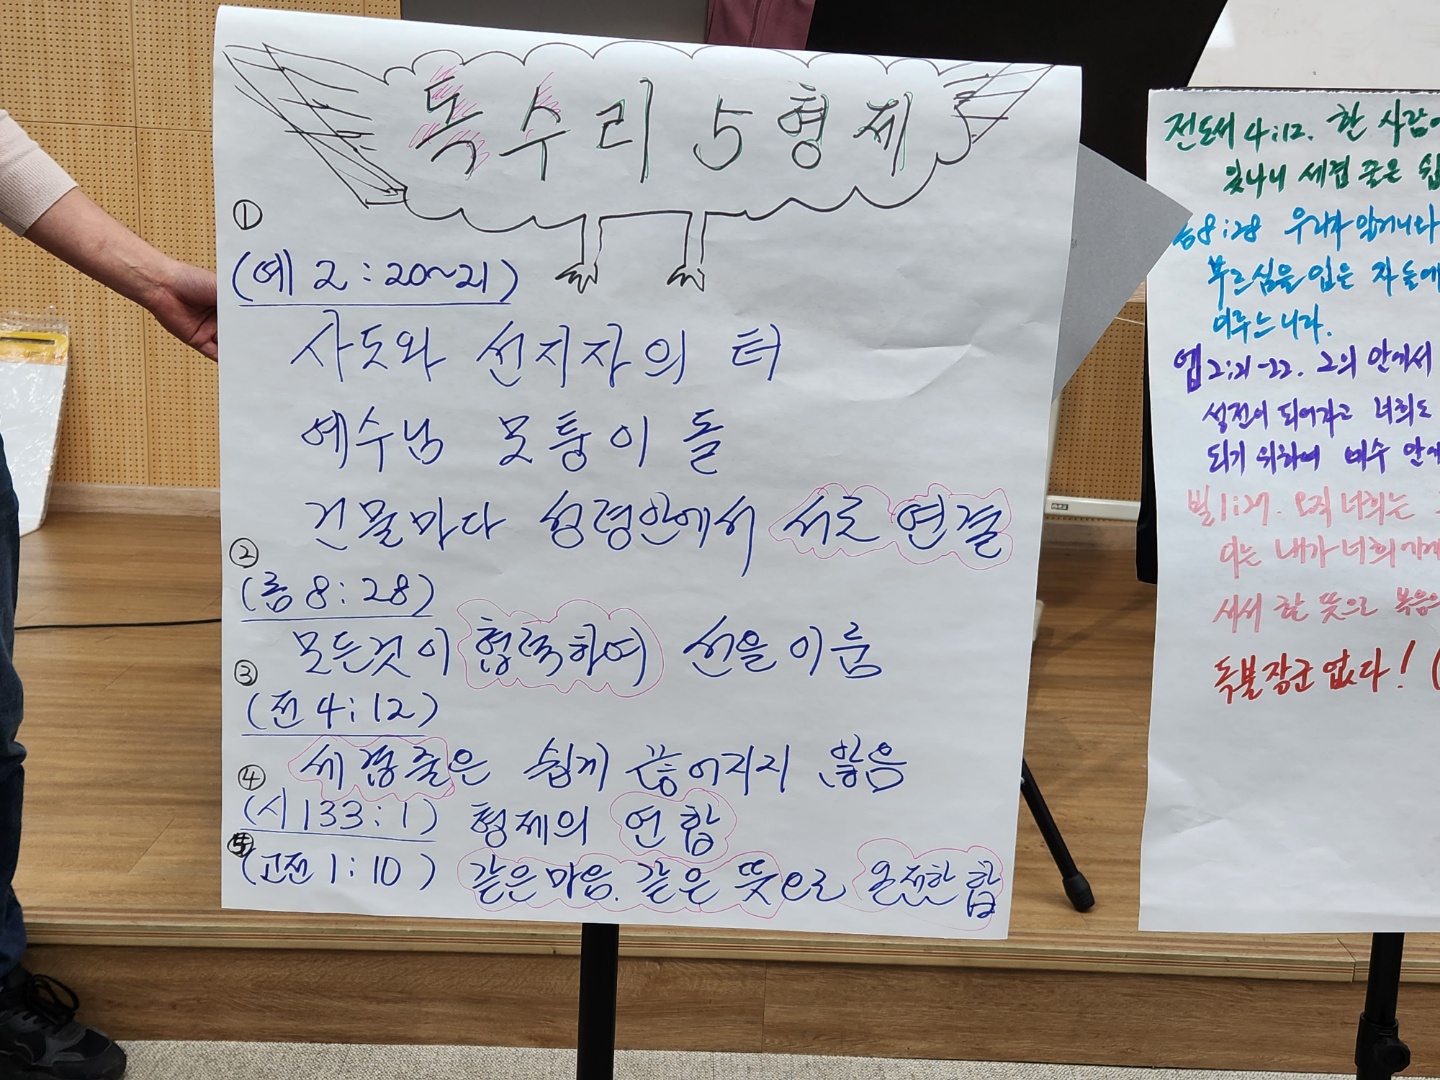 독수리 5형제
①
(예 2:20~21)
사도와 선지자의 터
예수님 모퉁이 돌
건물마다 성령안에서 서로 연결
②
(롬 8:28)
모든것이 협력하여 선을 이룸
③
(전 4:12)
세겹줄은 쉽게 끊어지지 않음
④
(시 133:1) 형제의 연합
⑤
(고전 1:10) 같은마음. 같은 뜻으로 온전한 합
전도서 4:12. 한 사람이
맞나니 세겹 줄은 쉽
롬8:28 우리가 알거니와
부르심을 입은 자들에
이루느니라.
엡2:21-22. 그의 안에서
성전이 되어가고 너희도
되기 위하여 예수 안에
빌1:27. 오직 너희는
이는 내가 너희에게
서서 한 뜻으로 복음의
독불장군 없다! (